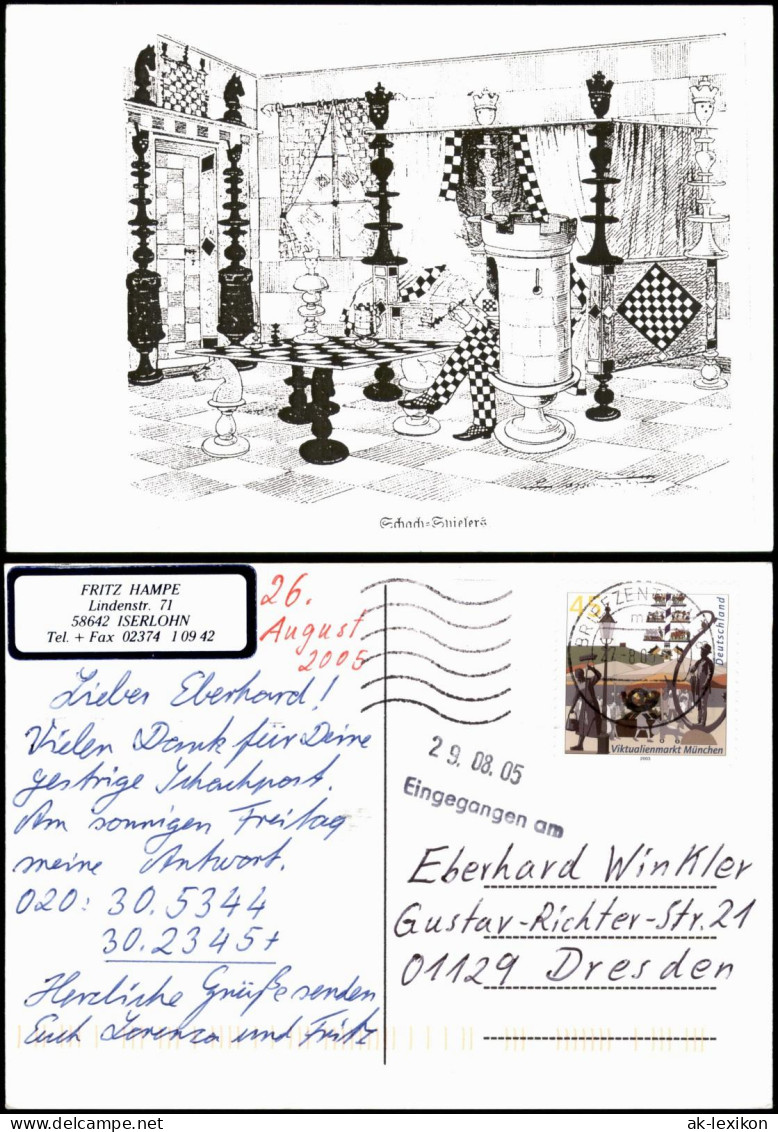 Schach=Spielers
FRITZ HAMPE
Lindenstr. 71
58642 ISERLOHN
Tel. + Fax 02374 1 09 42
26.
August
2005
BRIEFZENT
45
Deutschland
Viktualienmarkt München
2003
29. 08. 05
Eingegangen am
Lieber Eberhard!
Vielen Dank für Deine
gestrige Schachpost.
Am sonnigen Freitag
meine Antwort.
020: 30. 5344
30. 2345+
Herzliche Grüße senden
Euch Lorenza und Fritz
Eberhard Winkler
Gustav-Richter-Str. 21
01129 Dresden
ak-lexikon